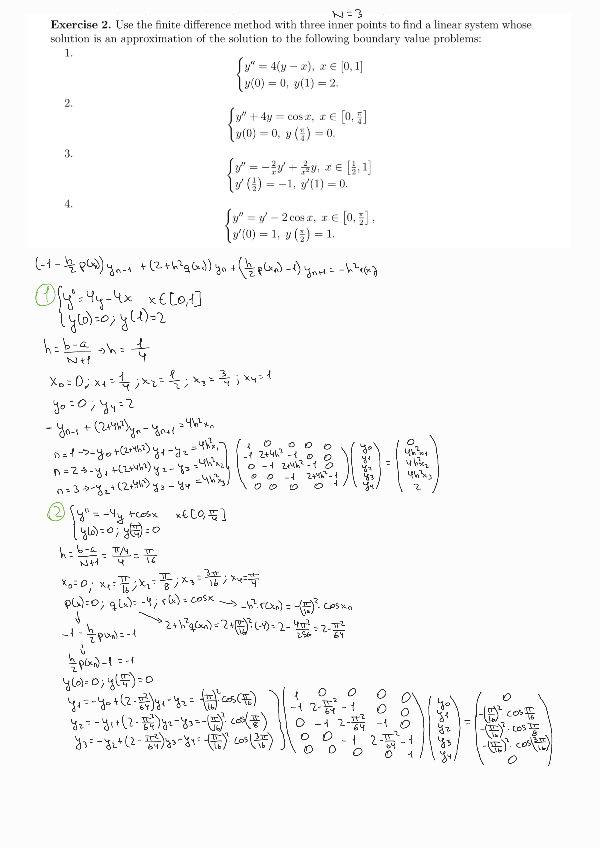 N=3
Exercise 2. Use the finite difference method with three inner points to find a linear system whose
solution is an approximation of the solution to the following boundary value problems:
1.
{y″ = 4(y − x), x ∈ [0, 1]
y(0) = 0, y(1) = 2.
2.
{y″ + 4y = cos x, x ∈ [0, π/4]
y(0) = 0, y(π/4) = 0.
3.
{y″ = −2/x y′ + 2/x² y, x ∈ [1/2, 1]
y′(1/2) = −1, y′(1) = 0.
4.
{y″ = y′ − 2 cos x, x ∈ [0, π/2],
y′(0) = 1, y(π/2) = 1.
(-1 - h/2 p(xₙ)) yₙ₋₁ + (2+h²q(xₙ)) yₙ + (h/2 p(xₙ) - 1) yₙ₊₁ = -h² r(xₙ)
① {y″=4y-4x x∈[0,1]
y(0)=0; y(1)=2
h = b-a/N+1 → h = 1/4
x₀=0; x₁=1/4; x₂=1/2; x₃=3/4; x₄=1
y₀=0; y₄=2
-yₙ₋₁ + (2+4h²)yₙ - yₙ₊₁ = 4h²xₙ
n=1 → -y₀+(2+4h²)y₁-y₂=4h²x₁
n=2 → -y₁+(2+4h²)y₂-y₃=4h²x₂
n=3 → -y₂+(2+4h²)y₃-y₄=4h²x₃
1 0 0 0 0 y₀ = 0
-1 2+4h² -1 0 0 y₁ 4h²x₁
0 -1 2+4h² -1 0 y₂ 4h²x₂
0 0 -1 2+4h² -1 y₃ 4h²x₃
0 0 0 0 1 y₄ 2
② {y″ = -4y + cosx x∈[0, π/4]
y(0)=0; y(π/4)=0
h = b-a/N+1 = π/4/4 = π/16
x₀=0; x₁=π/16; x₂=π/8; x₃=3π/16; x₄=π/4
p(x)=0; q(x)=-4; r(x)=cosx → -h²·r(xₙ) = -(π/16)²·cosxₙ
-1 - h/2 p(xₙ) = -1 → 2+h²q(xₙ) = 2+(π/16)²·(-4) = 2 - 4π²/256 = 2 - π²/64
h/2 p(xₙ) - 1 = -1
y(0)=0; y(π/4)=0
y₁ = -y₀+(2-π²/64)y₁-y₂ = -(π/16)²·cos(π/16)
y₂ = -y₁+(2-π²/64)y₂-y₃ = -(π/16)²·cos(π/8)
y₃ = -y₂+(2-π²/64)y₃-y₄ = -(π/16)²·cos(3π/16)
1 0 0 0 0 y₀ = 0
-1 2-π²/64 -1 0 0 y₁ -(π/16)²·cos π/16
0 -1 2-π²/64 -1 0 y₂ -(π/16)²·cos 3π/8
0 0 -1 2-π²/64 -1 y₃ -(π/16)²·cos(3π/16)
0 0 0 0 1 y₄ 0